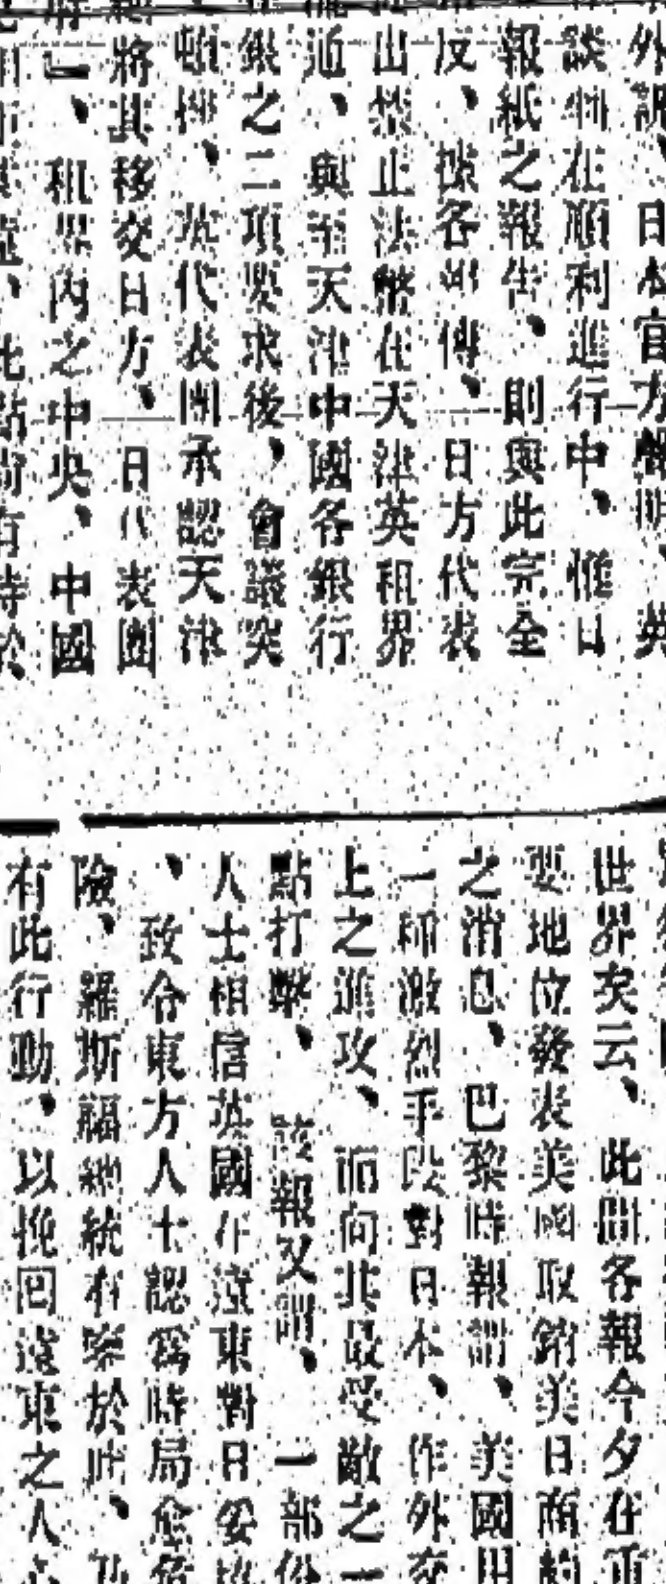 外訊、日本官方聲明、英
談判在順利進行中、惟日
報紙之報告、則與此完全
反、據各方傳、日方代表
出禁止法幣在天津英租界
通、與至天津中國各銀行
銀之二項要求後、會議突
頓挫、英代表團承認天津
將其移交日方、日代表團
』、租界內之中央、中國
此點尚有待於
世界矣云、此間各報今夕在重
要地位發表美國取銷美日商約
之消息、巴黎時報謂、美國用
一種激烈手段對日本、作外交
上之進攻、而向其最受敵之一
點打擊、該報又謂、一部份
人士相信英國在遠東對日妥協
、致令東方人士認為時局愈危
險、羅斯福總統有鑒於此、乃
有此行動、以挽回遠東之人心